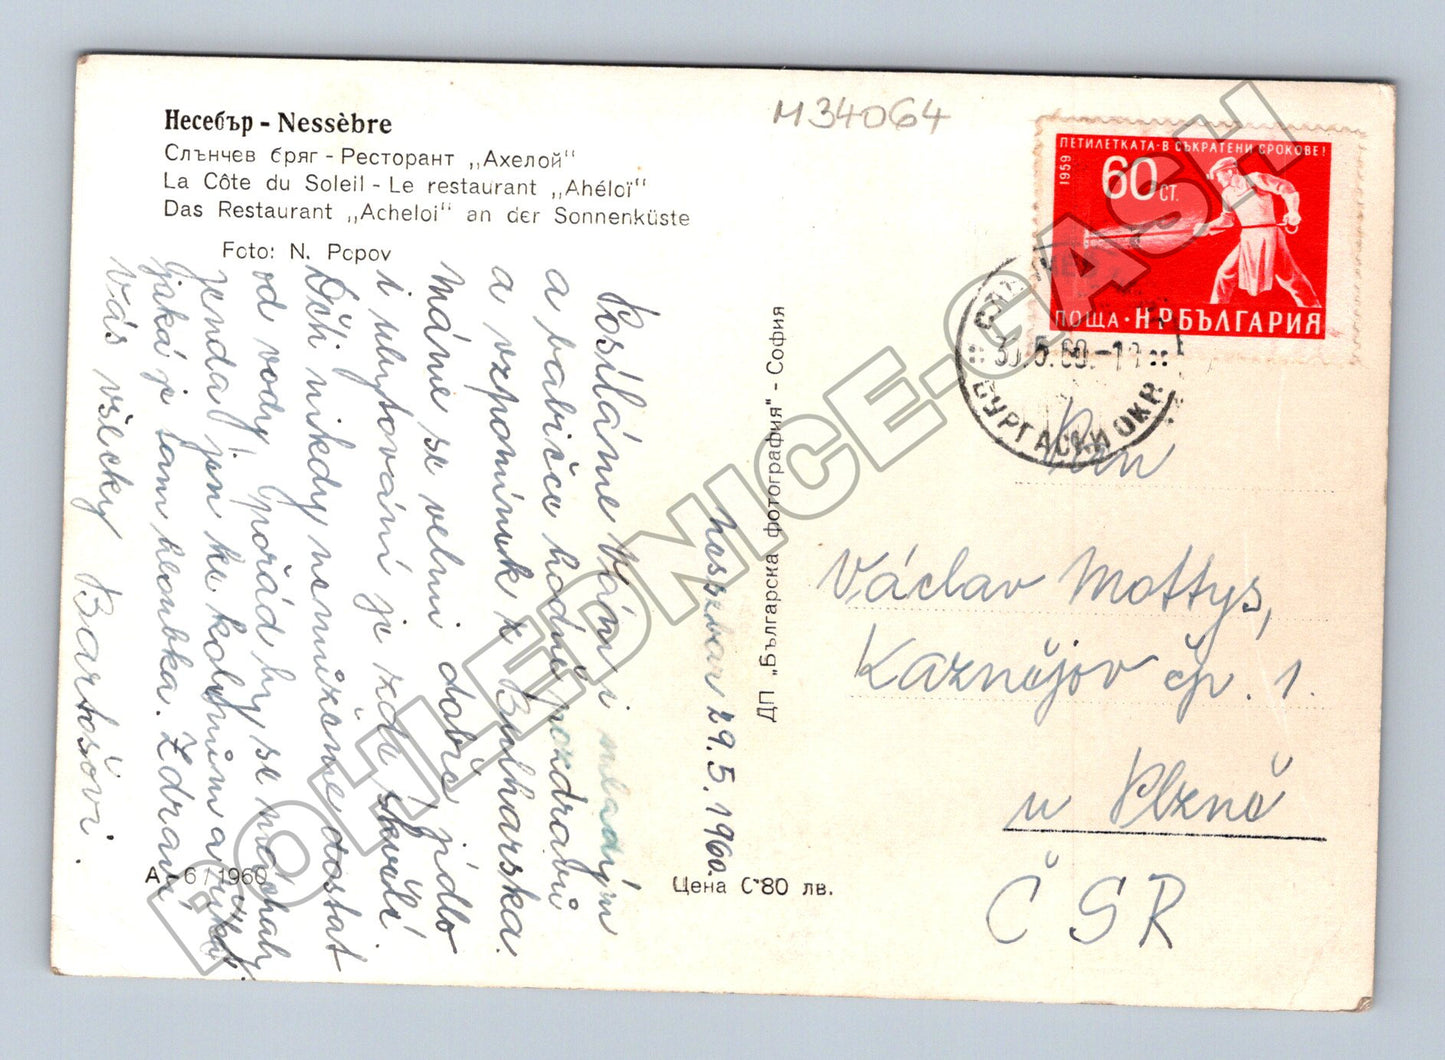 Несебър - Nessèbre
Слънчев бряг - Ресторант „Ахелой"
La Côte du Soleil - Le restaurant „Ahéloï"
Das Restaurant „Acheloi" an der Sonnenküste
Foto: N. Popov
M34064
ПЕТИЛЕТКАТА-В СЪКРАТЕНИ СРОКОВЕ!
1959
60 СТ.
ПОЩА · НРБЪЛГАРИЯ
30.5.60.-1
БУРГАСКИ ОКР.
Nessebar 29.5.1960.
Posíláme Vám i mladým
a babičce hodně pozdravů
a vzpomínek z Bulharska.
Máme se velmi dobře, jídlo
i ubytování je zde skvělé.
Děti nikdy nemůžeme dostat
od vody, pořád by se máchaly,
jenda jen ke kolenům a
jaká je tam hloubka. Zdraví
Vás všecky Bartošovi.
ДП „Българска фотография" - София
Václav Mottys,
Kaznějov čp. 1.
u Plzně
ČSR
А - 6 / 1960
Цена 0·80 лв.
POHLEDNICE-GASH